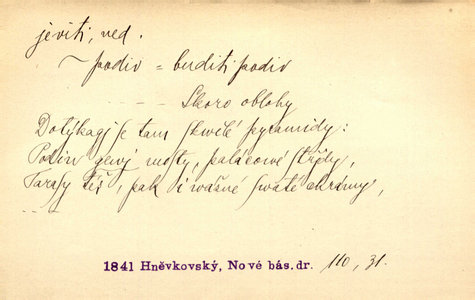 jeviti, ned.
~ podiv = buditi podiv
- - - Skoro oblohy
Dotýkagj se tam skwělé pyramidy:
Podiw gewj mosty, palácowé střely,
Tarasy též, pak i wážné swaté chrámy,
1841 Hněvkovský, Nové bás. dr. 110, 31.